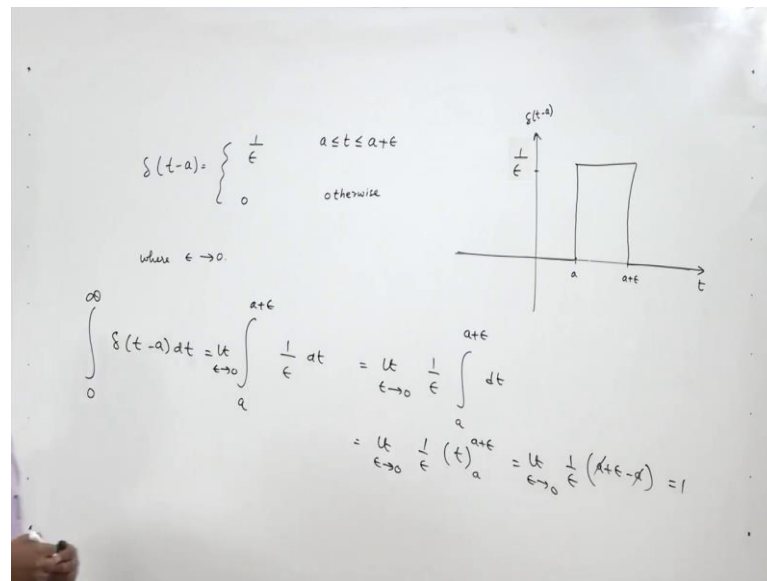 δ(t-a) = { 1/ϵ a ≤ t ≤ a+ϵ
0 otherwise
where ϵ → 0.
δ(t-a)
1/ϵ
a a+ϵ t
∫₀^∞ δ(t-a) dt = lt_{ϵ→0} ∫ₐ^{a+ϵ} 1/ϵ dt = lt_{ϵ→0} 1/ϵ ∫ₐ^{a+ϵ} dt
= lt_{ϵ→0} 1/ϵ (t)ₐ^{a+ϵ} = lt_{ϵ→0} 1/ϵ (a+ϵ-a) = 1